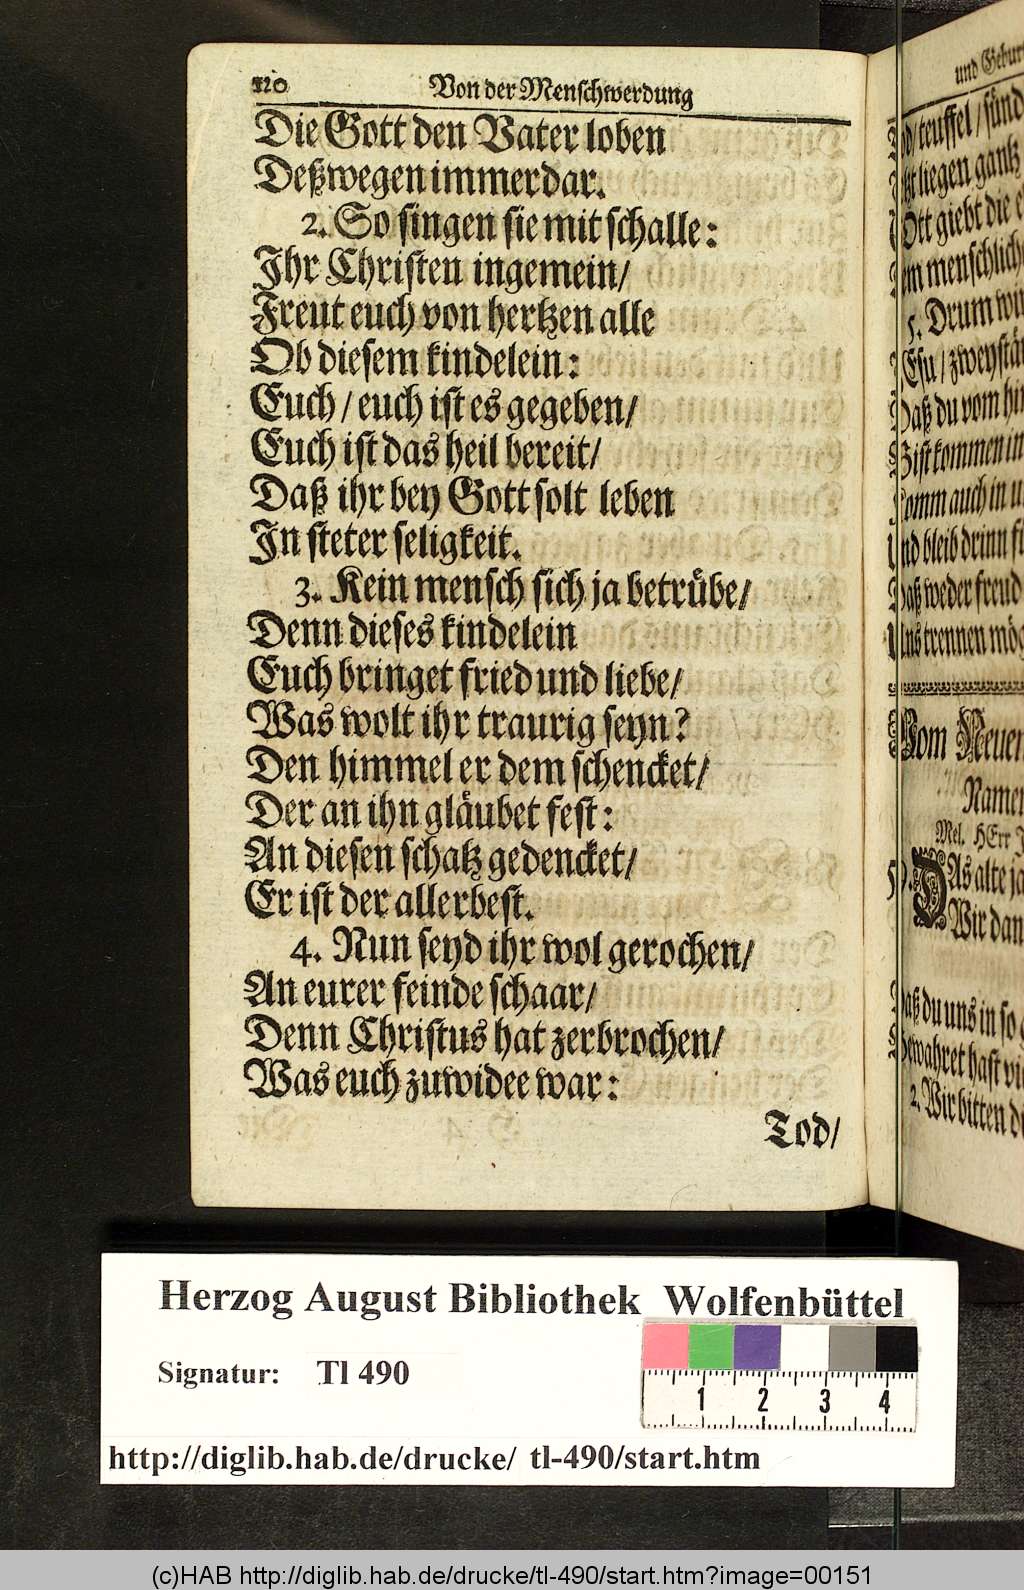 120 Von der Menschwerdung
Die Gott den Vater loben
Deßwegen immerdar.
2. So singen sie mit schalle:
Ihr Christen ingemein/
Freut euch von hertzen alle
Ob diesem kindelein:
Euch/ euch ist es gegeben/
Euch ist das heil bereit/
Daß ihr bey Gott solt leben
In steter seligkeit.
3. Kein mensch sich ja betrübe/
Denn dieses kindelein
Euch bringet fried und liebe/
Was wolt ihr traurig seyn?
Den himmel er dem schencket/
Der an ihn gläubet fest:
An diesen schatz gedencket/
Er ist der allerbest.
4. Nun seyd ihr wol gerochen/
An eurer feinde schaar/
Denn Christus hat zerbrochen/
Was euch zuwidee war:
Tod/
und
teuffel/
liegen gantz
giebt die
menschlich
5. Drum
zweystä
du vom
kommen in
auch in
bleib drinn
weder freud
trennen
Neuen
Namen
Mel. HErr
DAs alte
Wir
du uns in so
hast
2. Wir bitten
Herzog August Bibliothek Wolfenbüttel
Signatur: Tl 490
1 2 3 4
http://diglib.hab.de/drucke/ tl-490/start.htm
(c)HAB http://diglib.hab.de/drucke/tl-490/start.htm?image=00151